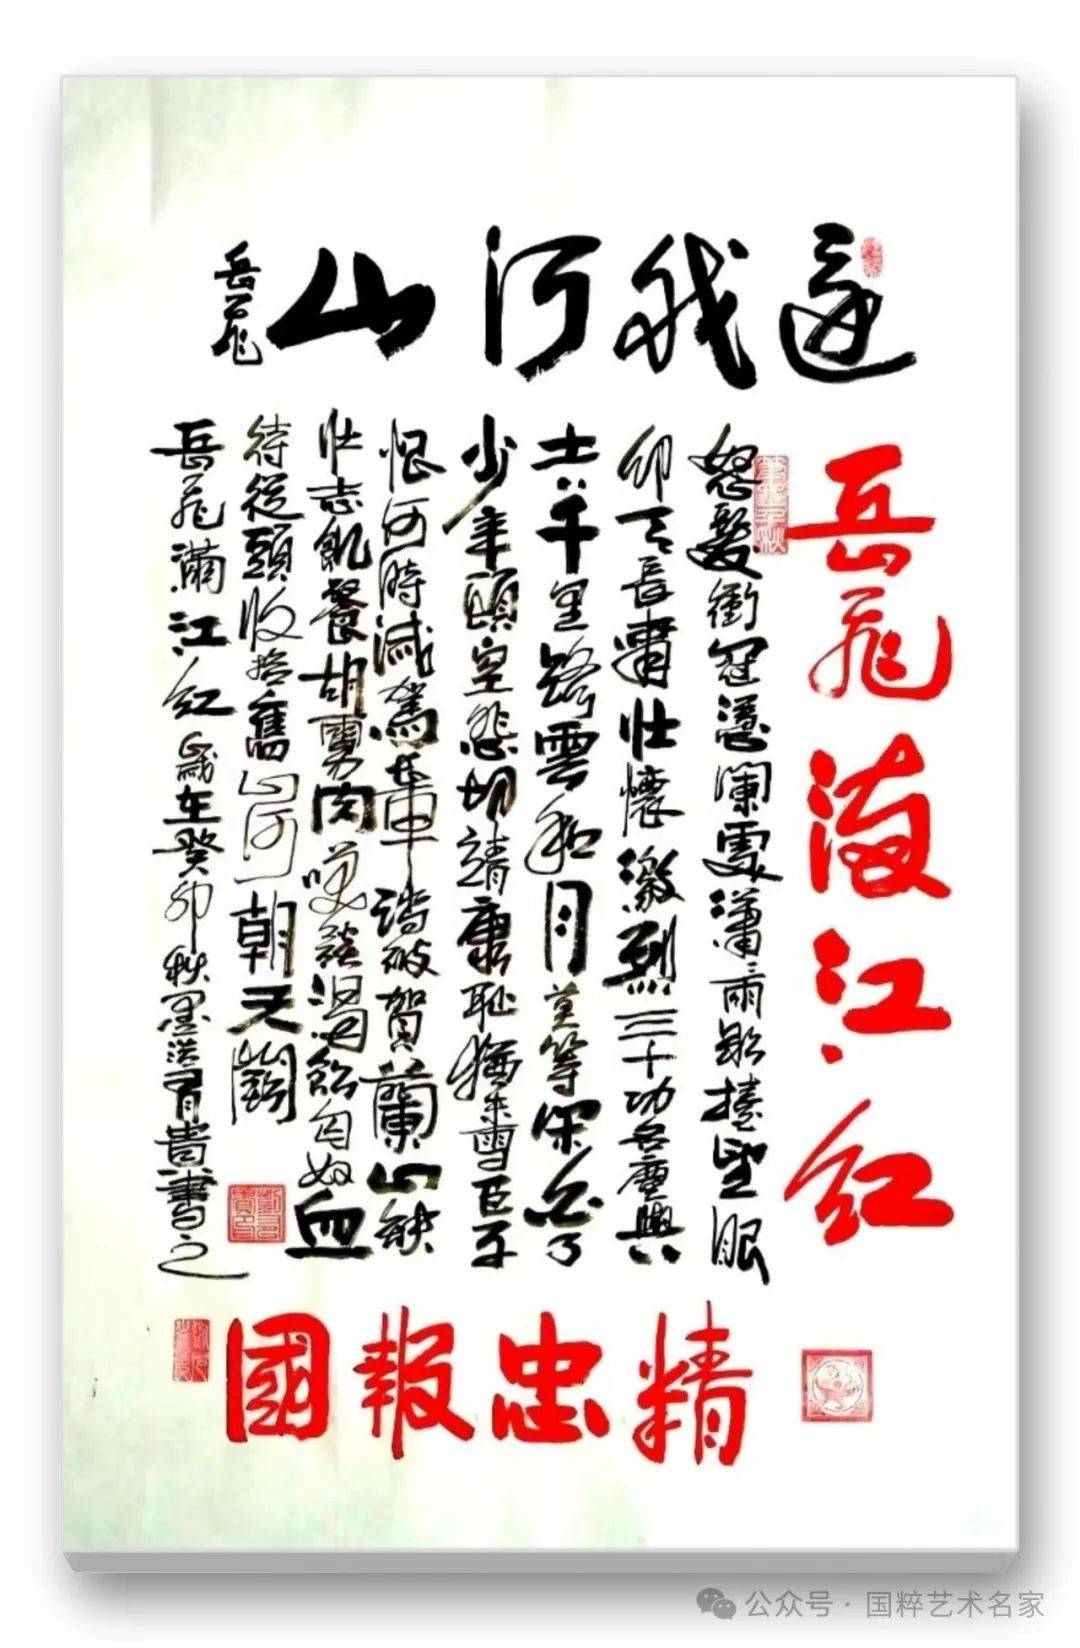 還我河山
岳飛
岳飛满江红
怒髮衝冠憑闌處瀟瀟雨歇擡望眼
仰天長嘯壯懷激烈三十功名塵與
土八千里路雲和月莫等閑白了
少年頭空悲切靖康恥猶未雪臣子
恨何時滅駕長車踏破賀蘭山缺
壯志飢餐胡虜肉笑談渴飲匈奴血
待從頭收拾舊山河朝天闕
岳飛滿江紅歲在癸卯秋有貴書之
精忠報國
公众号·国粹艺术名家